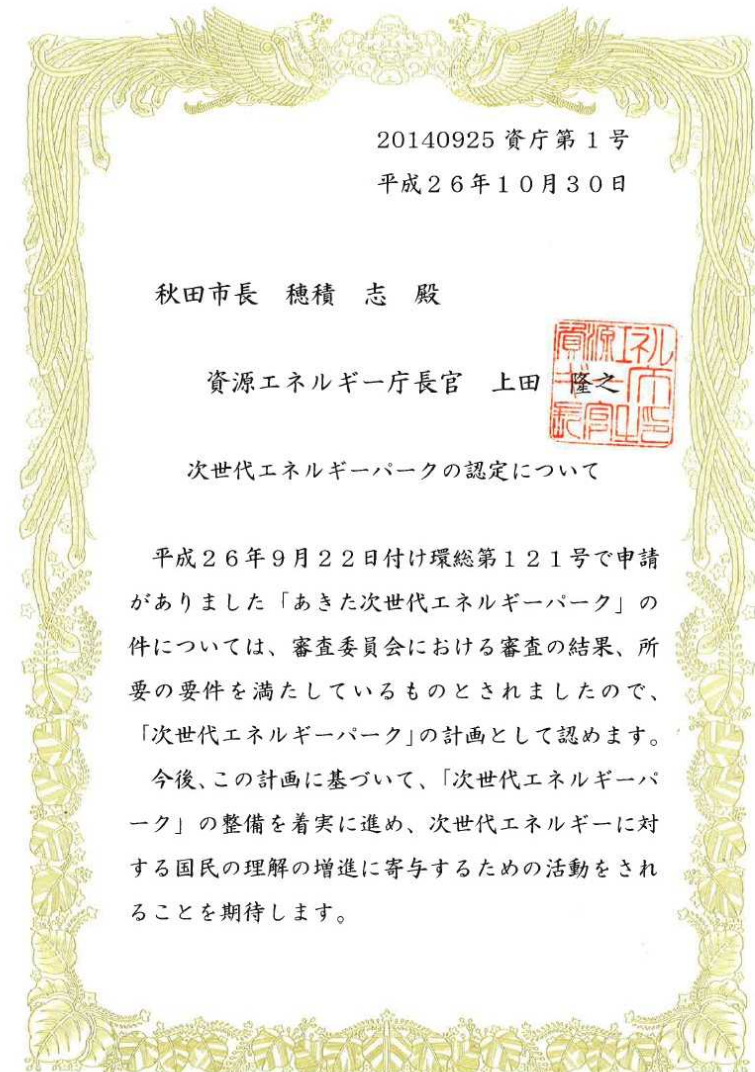 20140925資庁第1号
平成26年10月30日
秋田市長　穂積　志　殿
資源エネルギー庁長官　上田　隆之
次世代エネルギーパークの認定について
平成26年9月22日付け環総第121号で申請
がありました「あきた次世代エネルギーパーク」の
件については、審査委員会における審査の結果、所
要の要件を満たしているものとされましたので、
「次世代エネルギーパーク」の計画として認めます。
今後、この計画に基づいて、「次世代エネルギーパ
ーク」の整備を着実に進め、次世代エネルギーに対
する国民の理解の増進に寄与するための活動をされ
ることを期待します。
資源エネル
ギー庁
長官之印